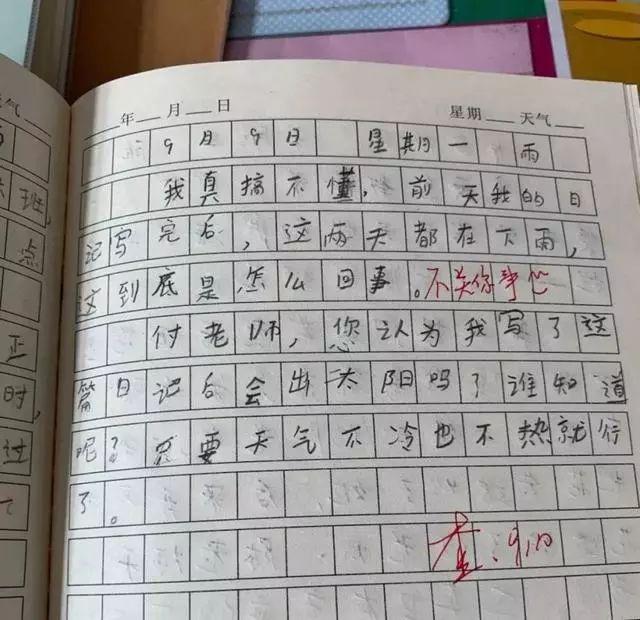 年 月 日 星期 天气
9月9日 星期一 雨
我真搞不懂，前天我的日
记写完后，这两天都在下雨，
这到底是怎么回事。不关你事
付老师，您认为我写了这
篇日记后会出太阳吗？谁知道
呢？只要天气不冷也不热就行
了。
查 9.10
气
班，
点
正
时，
过